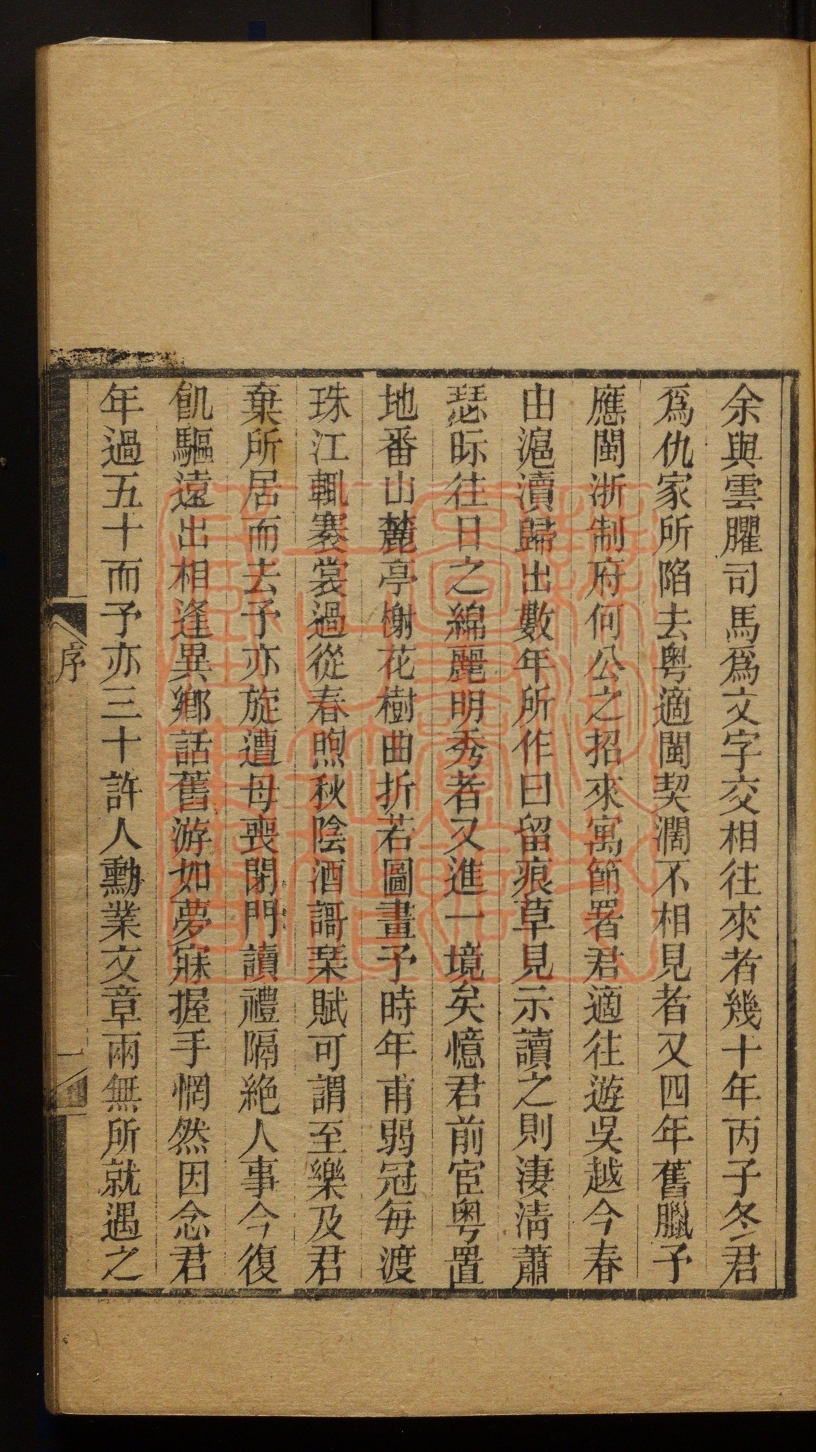 余與雲臞司馬爲文字交相往來者幾十年丙子冬君
爲仇家所陷去粵適閩契濶不相見者又四年舊臘予
應閩浙制府何公之招來寓節署君適往遊吳越今春
由滬瀆歸出數年所作曰留痕草見示讀之則淒淸蕭
瑟眎往日之綿麗明秀者又進一境矣憶君前宦粵置
地番山麓亭榭花樹曲折若圖畫予時年甫弱冠每渡
珠江輒褰裳過從春煦秋陰酒謌琹賦可謂至樂及君
棄所居而去予亦旋遭母喪閉門讀禮隔絶人事今復
飢驅遠出相逢異鄉話舊游如夢寐握手惘然因念君
年過五十而予亦三十許人勳業文章兩無所就遇之
序
一